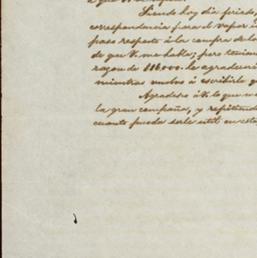 Siendo hoy dia feriado,
correspondencia para el vapor
paso respecto á la compra de lo
de que V. me habla; pero tenien
razon de $16.000. le agradecer
mientras vuelvo á escribirle
Agradezco á V. lo que me
la gran compañia, y repitiendo
cuanto pueda serle util en esta